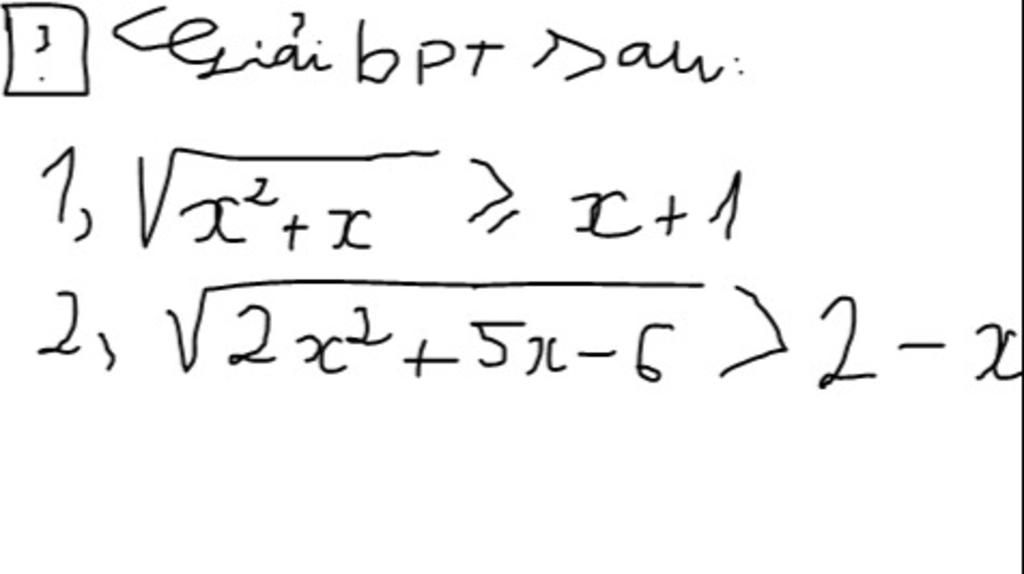 ? Giải bpt sau:
1, √(x²+x) ⩾ x+1
2, √(2x²+5x-6) > 2-x